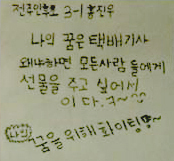 전주인후초 3-1 홍진우
나의 꿈은 택배기사
왜냐하면 모든사람들에게
선물을 주고 싶어서
이다.ㅋ~
나의
꿈을 위해 화이팅!~